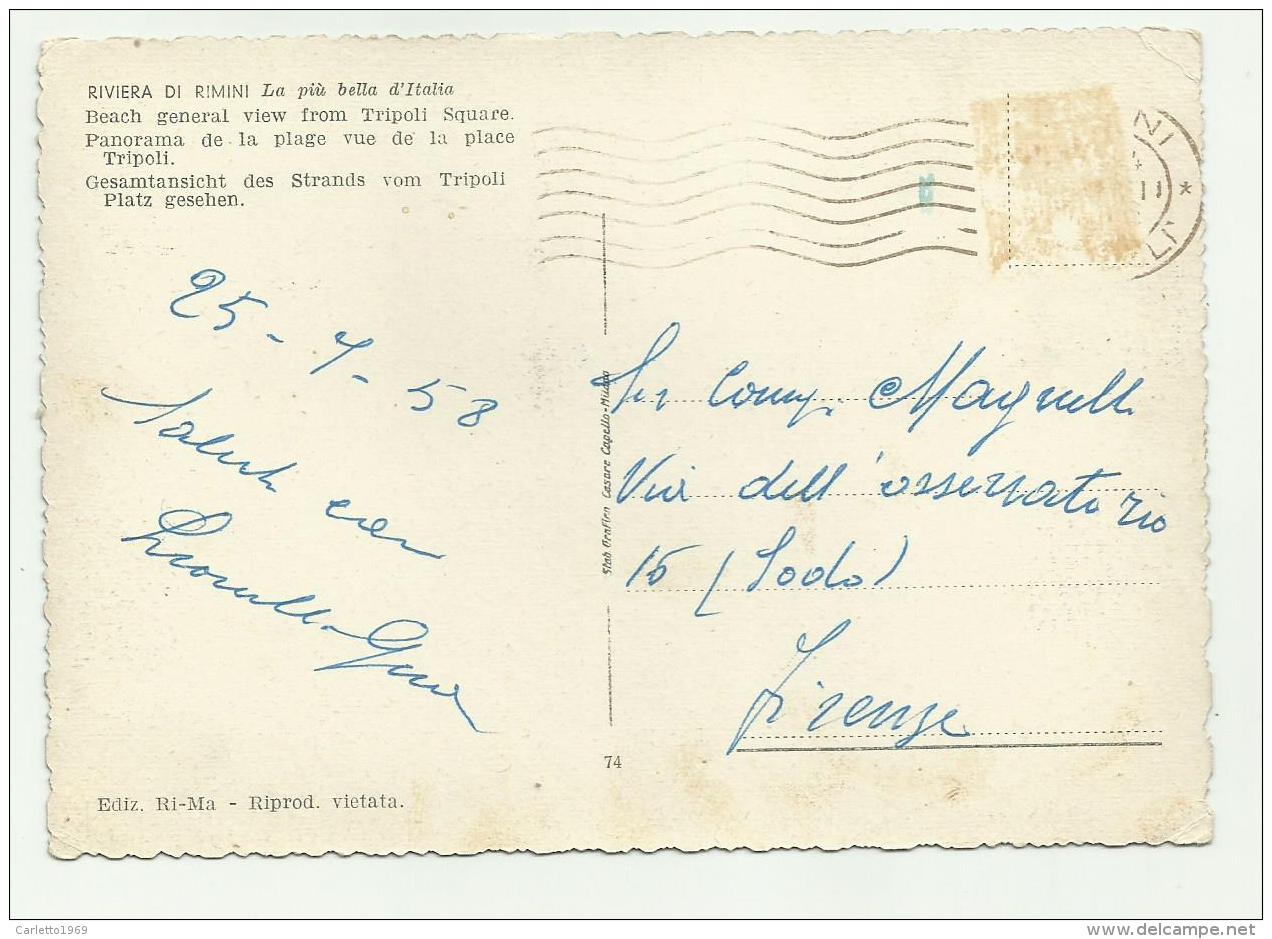 RIVIERA DI RIMINI La più bella d'Italia
Beach general view from Tripoli Square.
Panorama de la plage vue de la place
Tripoli.
Gesamtansicht des Strands vom Tripoli
Platz gesehen.
25-7-58
Saluti
Stab Grafico Cesare Capello-Milano
Magnelli
Via dell'osservatorio
(Sodo)
Firenze
74
Ediz. Ri-Ma - Riprod. vietata.
Carletto1969
www.delcampe.net